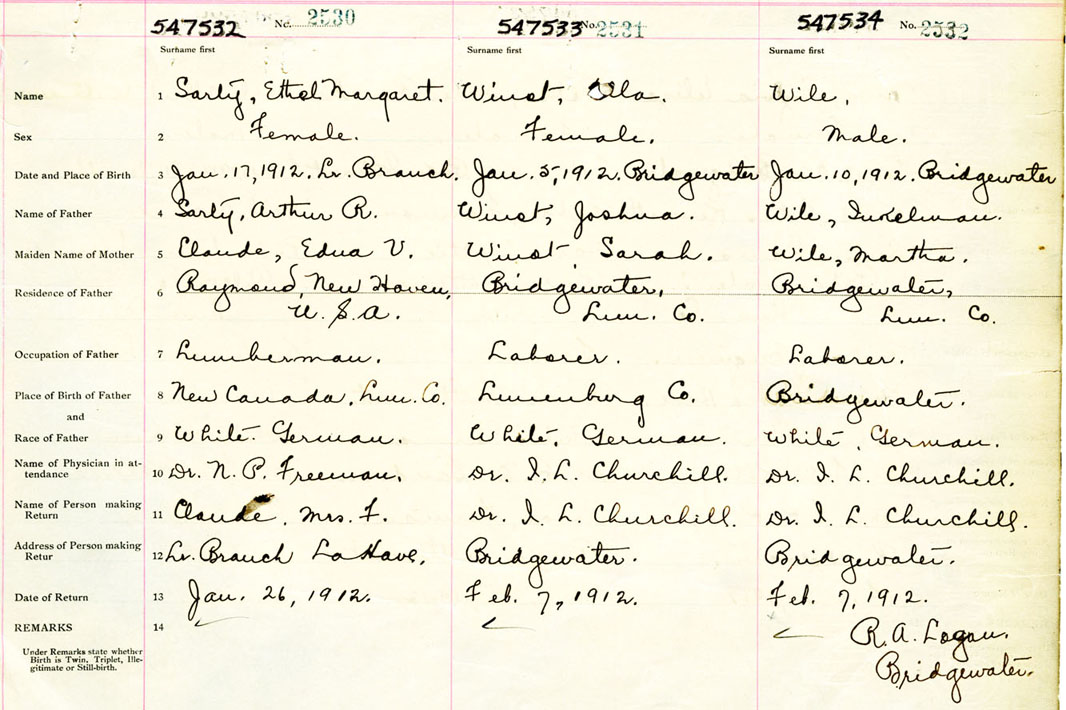 547532 No. 2530 547533 No. 2531 547534 No. 2532
Surname first Surname first Surname first
Name 1 Sarty, Ethel Margaret. Winot, Ella. Wile,
Sex 2 Female. Female. Male.
Date and Place of Birth 3 Jan. 17, 1912. Lr. Branch. Jan. 5, 1912. Bridgewater Jan. 10, 1912. Bridgewater
Name of Father 4 Sarty, Arthur R. Winot, Joshua. Wile,
Maiden Name of Mother 5 Claude, Edna V. Winot, Sarah. Wile, Martha.
Residence of Father 6 Raymond, New Haven, Bridgewater, Bridgewater,
U.S.A. Lun. Co. Lun. Co.
Occupation of Father 7 Lumberman. Laborer. Laborer.
Place of Birth of Father 8 New Canada, Lun. Co. Lunenburg Co. Bridgewater.
and
Race of Father 9 White. German. White, German. White, German.
Name of Physician in at-
tendance 10 Dr. N. P. Freeman. Dr. I. L. Churchill. Dr. I. L. Churchill.
Name of Person making
Return 11 Claude, Mrs. F. Dr. I. L. Churchill. Dr. I. L. Churchill.
Address of Person making
Retur 12 Lr. Branch La Have. Bridgewater. Bridgewater.
Date of Return 13 Jan. 26, 1912. Feb. 7, 1912. Feb. 7, 1912.
REMARKS 14 R. A. Logan.
Under Remarks state whether
Birth is Twin, Triplet, Ille-
gitimate or Still-birth.
Bridgewater.